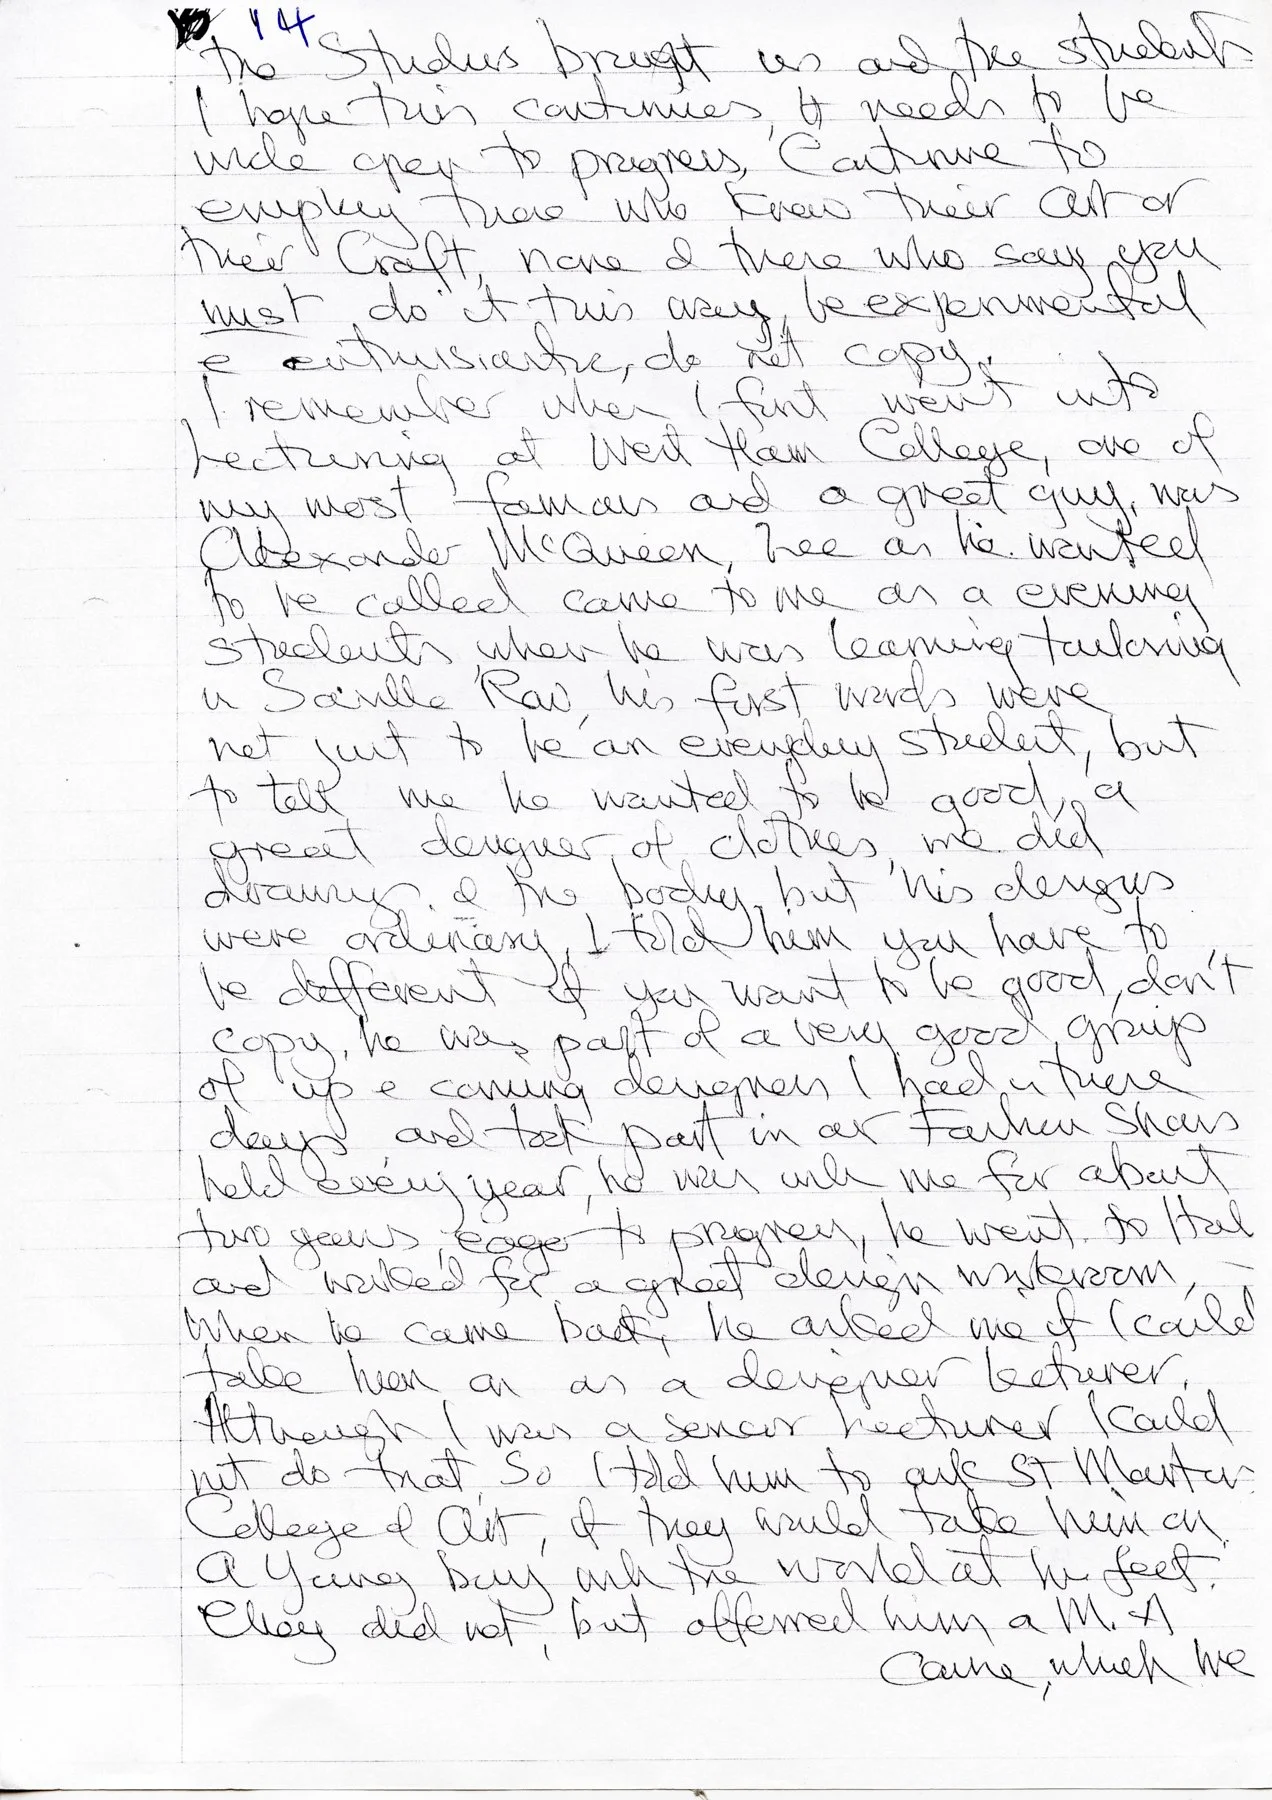 14
the Studios brought us and the students
I hope this continues, It needs to be
wide open to progress, Continue to
employ those who know their Art or
their Craft, none of those who say you
must do it this way, be experimental
e enthusiastic, do not copy.
I remember when I first went into
Lecturing at West Ham College, one of
my most famous and a great guy, was
Alexander McQueen, Lee as he wanted
to be called came to me as a evening
students when he was learning tailoring
in Saville Row, his first words were
not just to be an everyday student, but
to tell me he wanted to be good, a
great designer, of clothes, we did
drawings of the body, but his designs
were ordinary, I told him you have to
be different if you want to be good, don't
copy, he was part of a very good group
of up e coming designers I had in those
days, and took part in our Fashion Shows
held every year, he was with me for about
two years, eager to progress, he went to Ital
and worked for a great design workroom,
When he came back, he asked me if I could
take him on as a designer lecturer,
Although I was a senior Lecturer I could
not do that, So I told him to ask St Martins
College of Art, if they would take him on
A Young boy with the world at his feet.
They did not, but offerred him a M.A
Course, which we